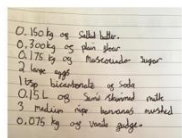 0.150 kg of salted butter.
0.300kg of plain flour
0.175 kg of Muscovado sugar
2 large eggs
1 tsp bicarbonate of soda
0.15L of semi skimmed milk
3 medium ripe bananas mashed
0.075 kg of vanilla fudge.